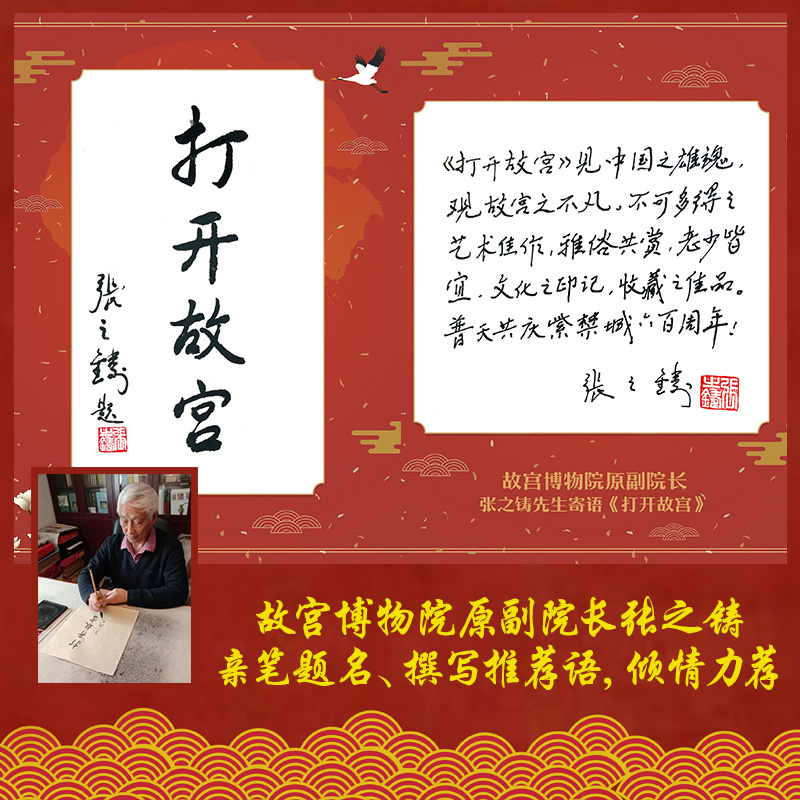 打开故宫
张之鑄题
《打开故宫》见中国之雄魂，
观故宫之不凡。不可多得之
艺术佳作，雅俗共赏，老少皆
宜，文化之印记，收藏之佳品。
普天共庆紫禁城六百周年！
张之鑄
故宫博物院原副院长
张之铸先生寄语《打开故宫》
故宫博物院原副院长张之铸
亲笔题名、撰写推荐语，倾情力荐